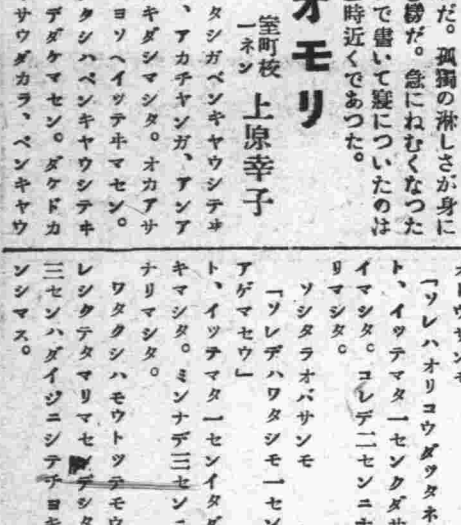 だ。孤獨の淋しさが身に
鬱だ。急にねむくなつた
で書いて寢についたのは
時近くであつた。
オモリ
室町校
一ネン
上原幸子
タシガベンキヤウシテヰ
、アカチヤンガ、アンア
キダシマシタ。オカアサ
ヨソヘイツテヰマセン。
タシハベンキヤウシテヰ
デダケマセン。ダケドカ
サウダカラ、ベンキヤウ
「ソレハオリコウダツタネ
ト、イツテマタ一センクダ
イマシタ。コレデ二センニ
リマシタ。
ソシタラオバサンモ
「ソレデハワタシモ一セン
アゲマセウ」
ト、イツテマタ一センイタダ
キマシタ。ミンナデ三センニ
ナリマシタ。
ワタクシハモウトツテモウ
レシクテタマリマセンデシタ
三センハダイジニシテチヨキ
ンシマス。